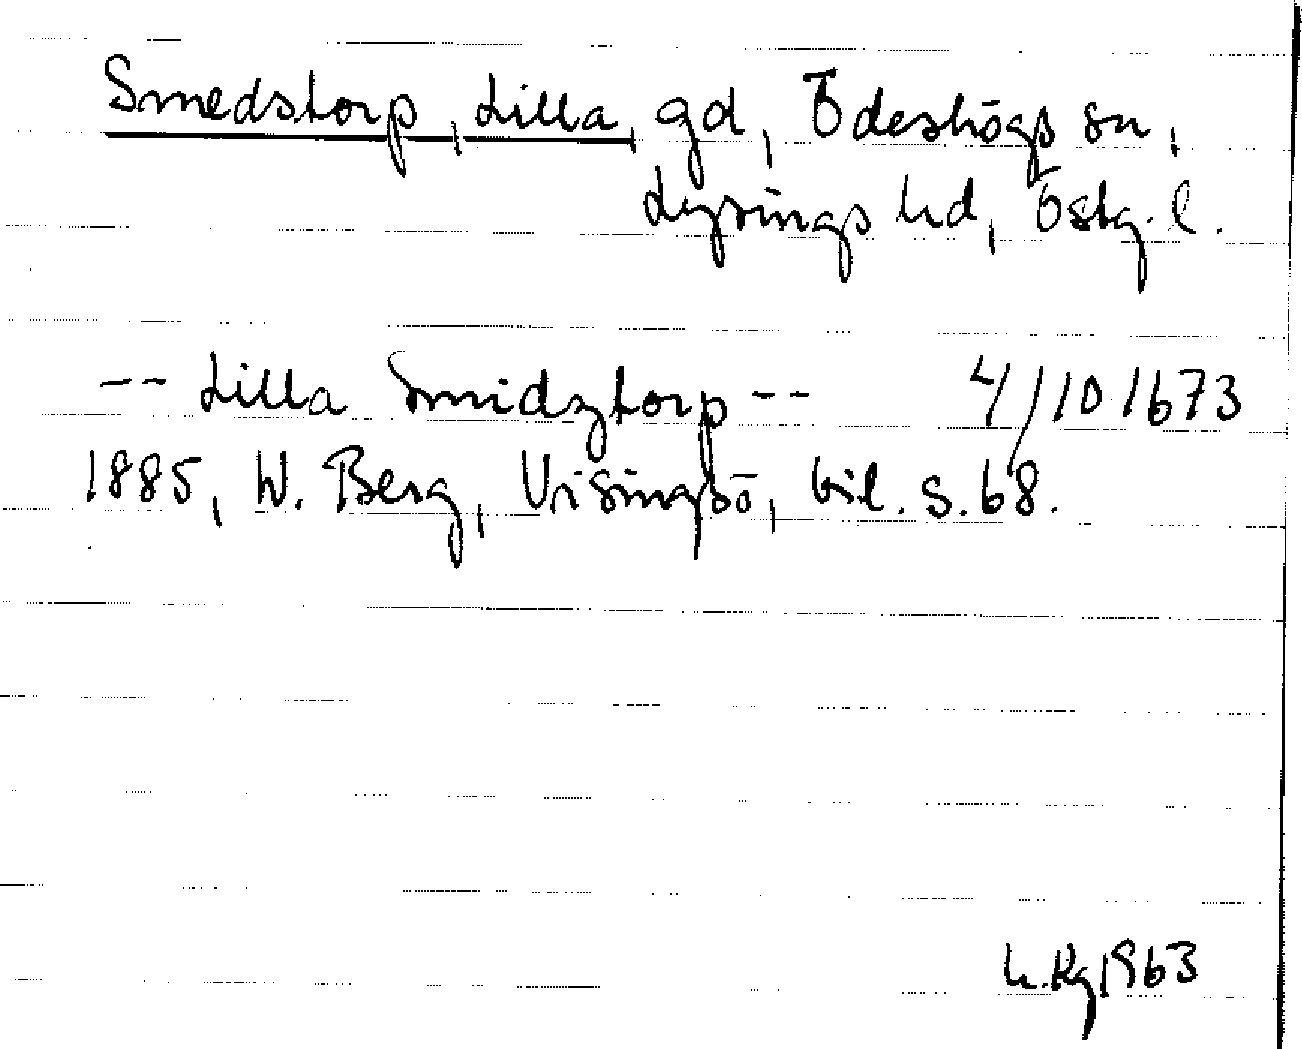 Smedstorp, Lilla, gd, Ödeshögs sn,
Lysings hd, Östg. l.
-- Lilla Smidztorp -- 4/10 1673
1885, W. Berg, Visingsö, bil. s. 68.
h. Kg 1963